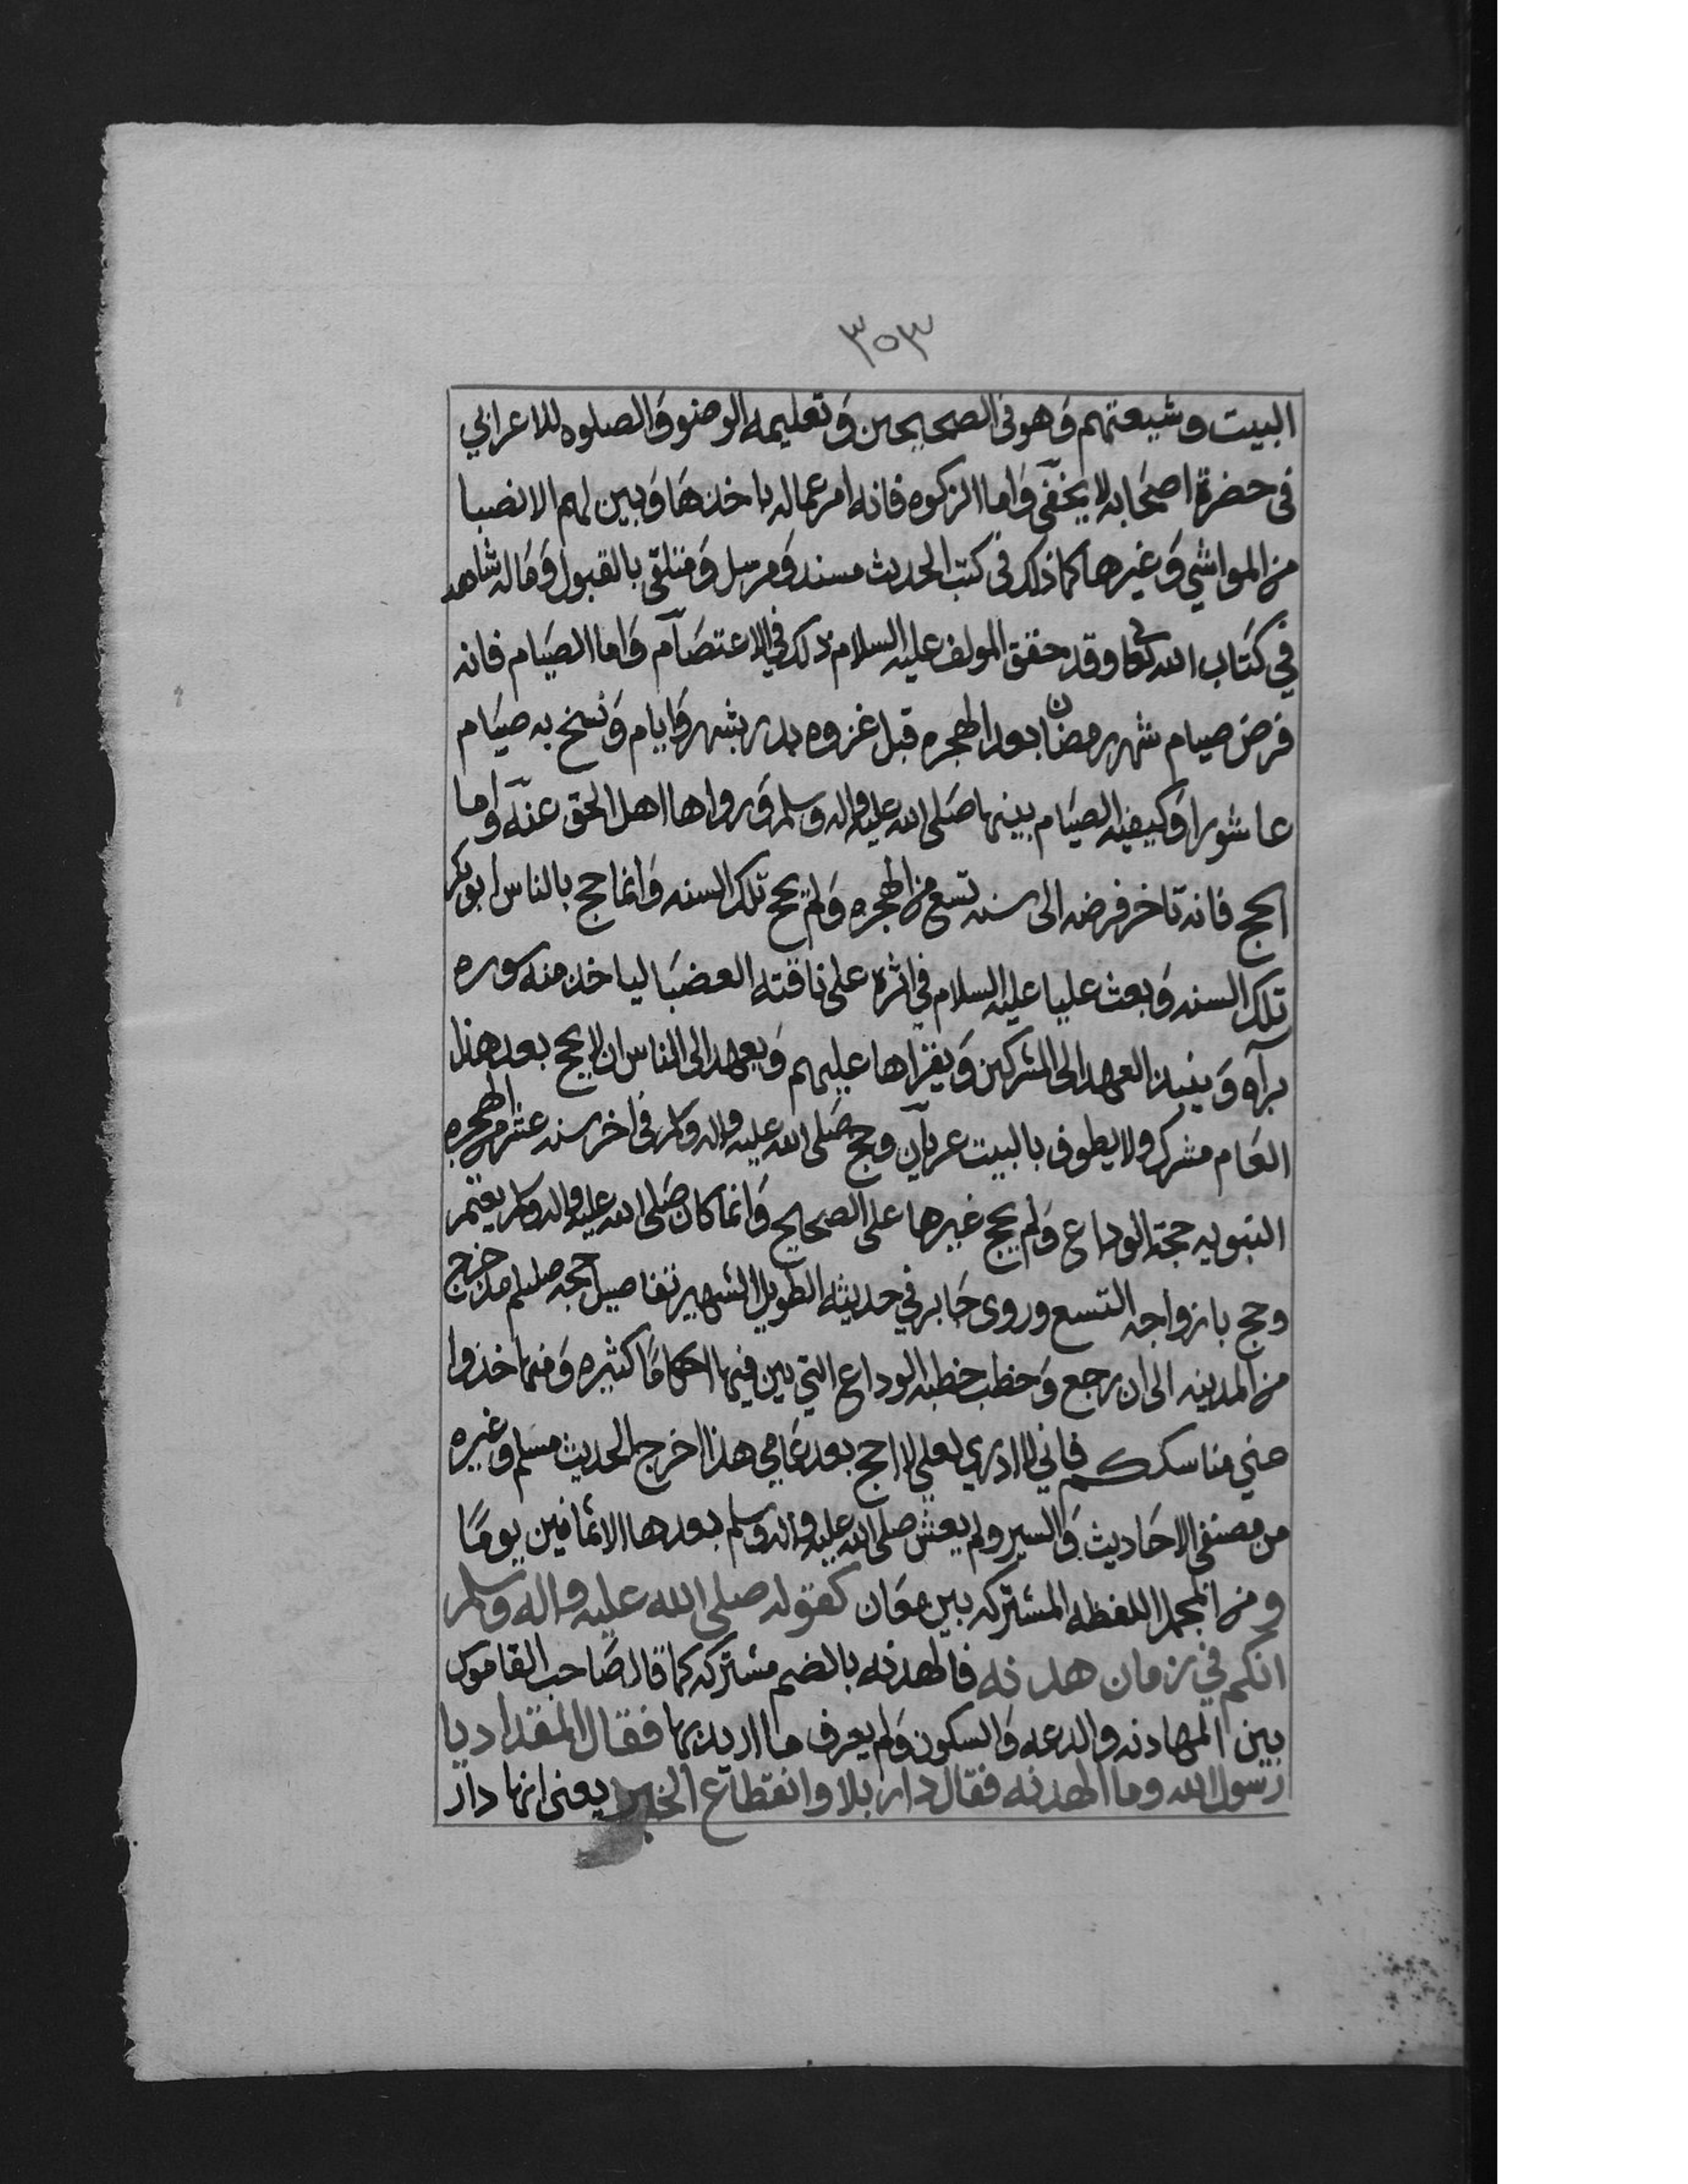 ٣٥٣
البيت وشيعتهم وهو في الصحيحين وتعليمه الوضو والصلوه للاعرابي
في حضرة اصحابه لا يخفى واما الزكوه فانه امر عماله باخذها وبين لهم الانصبا
من المواشي وغيرها كما ذلك في كتب الحديث مسند ومرسل ومتلقى بالقبول وماله شاهد
في كتاب الله تعالى وقد حقق المولف عليه السلام ذلك في الاعتصام واما الصيام فانه
فرض صيام شهر رمضان بعد الهجره قبل غزوه بدر بشهر وايام ونسخ به صيام
عاشورا وكيفيه الصيام بينها صلى الله عليه واله وسلم ورواها اهل الحق عنه واما
الحج فانه تاخر فرضه الى سنه تسع من الهجره ولم يحج تلك السنه وانما حج بالناس ابو بكر
تلك السنه وبعث عليا عليه السلام في اثره على ناقته العضبا لياخذ منه سوره
برآه وينبذ العهد الى المشركين ويقراها عليهم ويعهد الى الناس ان لا يحج بعد هذا
العام مشرك ولا يطوف بالبيت عريان وحج صلى الله عليه واله وسلم في اخر سنه عشر من الهجره
النبويه حجة الوداع ولم يحج غيرها على الصحيح وانما كان صلى الله عليه واله وسلم يعتمر
وحج بازواجه التسع وروى جابر في حديثه الطويل الشهير تفاصيل حجه صللم مذ خرج
من المدينه الى ان رجع وخطب خطبه الوداع التي بين فيها احكاما كثيره ومنها خذوا
عني مناسككم فاني لا ادري لعلي لا احج بعد عامي هذا اخرج الحديث مسلم وغيره
من مصنفي الاحاديث والسير ولم يعش صلى الله عليه واله وسلم بعدها الا ثمانين يوما
ومن المجمل اللفظه المشتركه بين معان كقوله صلى الله عليه واله وسلم
انكم في زمان هدنه فالهدنه بالضم مشتركه كما قال صاحب القاموس
بين المهادنه والدعه والسكون ولم يعرف ما اريد بها فقال المقداد يا
رسول الله وما الهدنه فقال دار بلا وانقطاع الخبر يعني انها دار